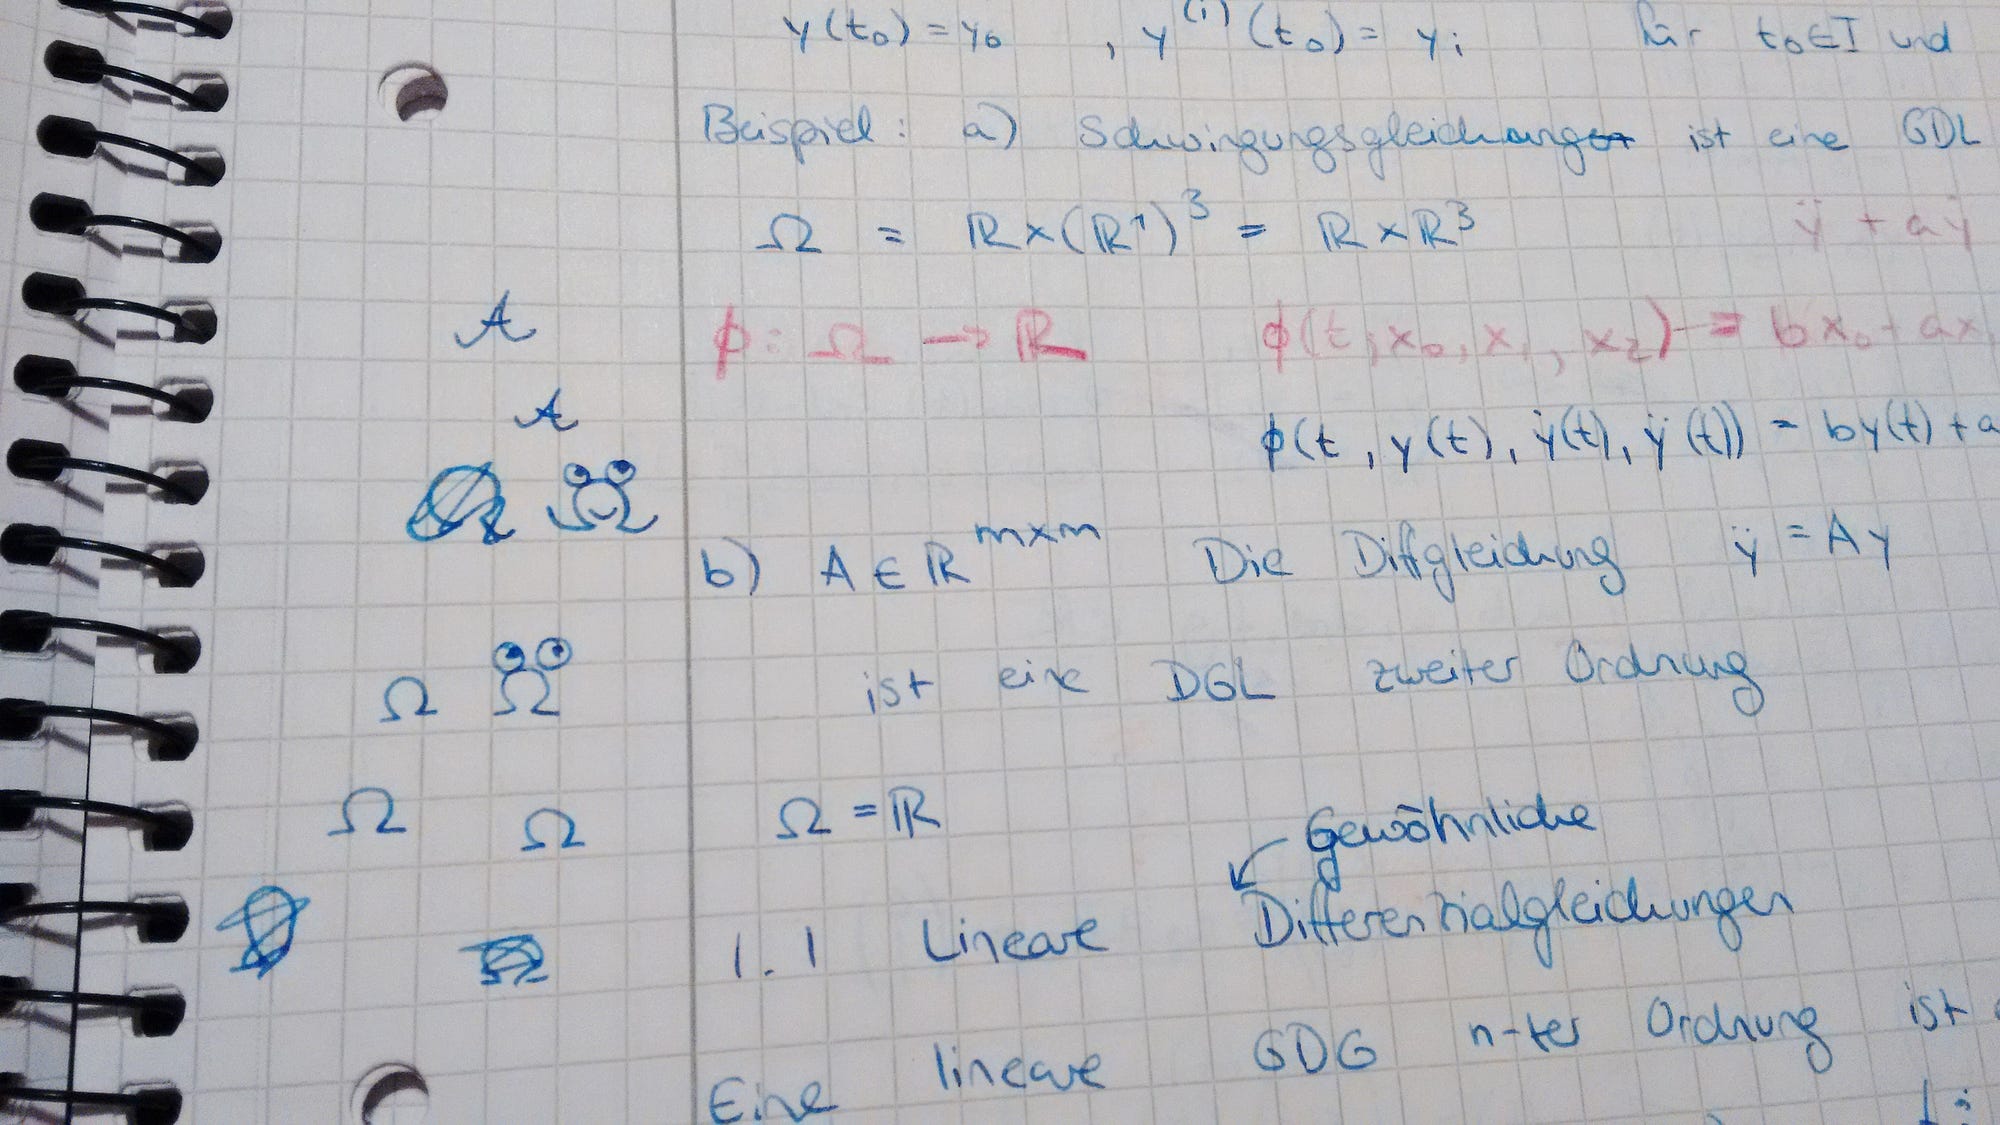 y(t₀) = y₀ , y⁽ⁱ⁾(t₀) = yᵢ für t₀ ∈ I und
Beispiel: a) Schwingungsgleichung ist eine GDL
Ω = ℝ × (ℝ¹)³ = ℝ × ℝ³ ÿ + aẏ
A
ϕ: Ω → ℝ ϕ(t, x₀, x₁, x₂) = bx₀ + ax₁
A
ϕ(t, y(t), ẏ(t), ÿ(t)) = by(t) + a
b) A ∈ ℝᵐˣᵐ Die Diffgleichung ÿ = Ay
Ω Ω
ist eine DGL zweiter Ordnung
Ω Ω
Ω = ℝ
Gewöhnliche
1.1 Lineare Differenzialgleichungen
Eine lineare GDG n-ter Ordnung ist